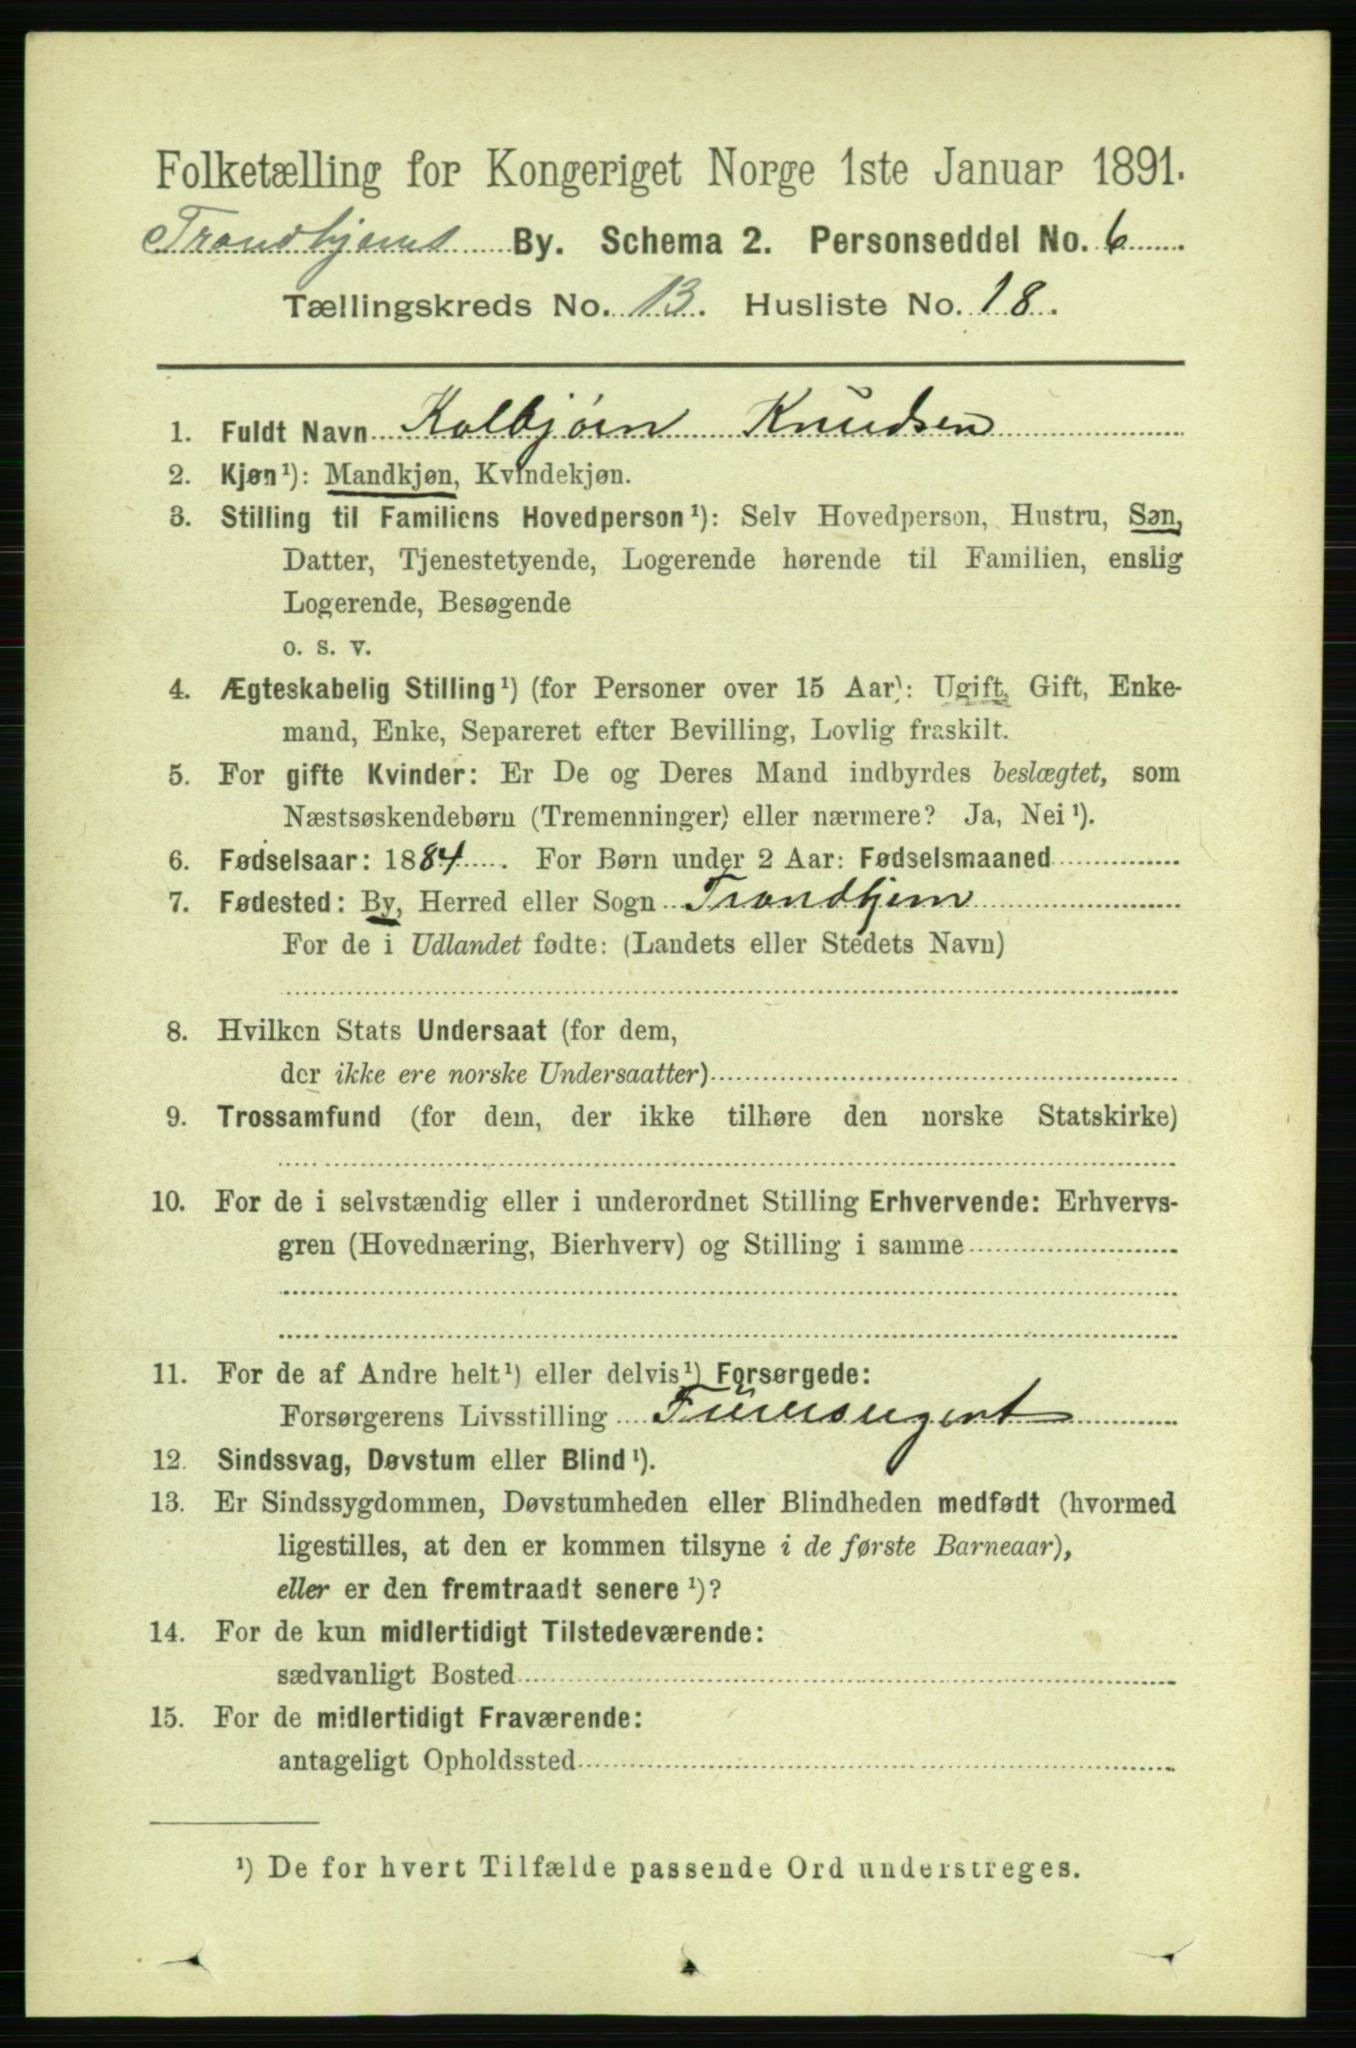 Folketælling for Kongeriget Norge 1ste Januar 1891.
Trondhjems By. Schema 2. Personseddel No. 6
Tællingskreds No. 13. Husliste No. 18.
1. Fuldt Navn Kolbjørn Knudsen
2. Kjøn¹): Mandkjøn, Kvindekjøn.
3. Stilling til Familiens Hovedperson¹): Selv Hovedperson, Hustru, Søn,
Datter, Tjenestetyende, Logerende hørende til Familien, enslig
Logerende, Besøgende
o. s. v.
4. Ægteskabelig Stilling¹) (for Personer over 15 Aar): Ugift, Gift, Enke-
mand, Enke, Separeret efter Bevilling, Lovlig fraskilt.
5. For gifte Kvinder: Er De og Deres Mand indbyrdes beslægtet, som
Næstsøskendebørn (Tremenninger) eller nærmere? Ja, Nei¹).
6. Fødselsaar: 1884. For Børn under 2 Aar: Fødselsmaaned
7. Fødested: By, Herred eller Sogn Trondhjem
For de i Udlandet fødte: (Landets eller Stedets Navn)
8. Hvilken Stats Undersaat (for dem,
der ikke ere norske Undersaatter)
9. Trossamfund (for dem, der ikke tilhøre den norske Statskirke)
10. For de i selvstændig eller i underordnet Stilling Erhvervende: Erhvervs-
gren (Hovednæring, Bierhverv) og Stilling i samme
11. For de af Andre helt¹) eller delvis¹) Forsørgede:
Forsørgerens Livsstilling
12. Sindssvag, Døvstum eller Blind¹).
13. Er Sindssygdommen, Døvstumheden eller Blindheden medfødt (hvormed
ligestilles, at den er kommen tilsyne i de første Barneaar),
eller er den fremtraadt senere¹)?
14. For de kun midlertidigt Tilstedeværende:
sædvanligt Bosted
15. For de midlertidigt Fraværende:
antageligt Opholdssted
¹) De for hvert Tilfælde passende Ord understreges.